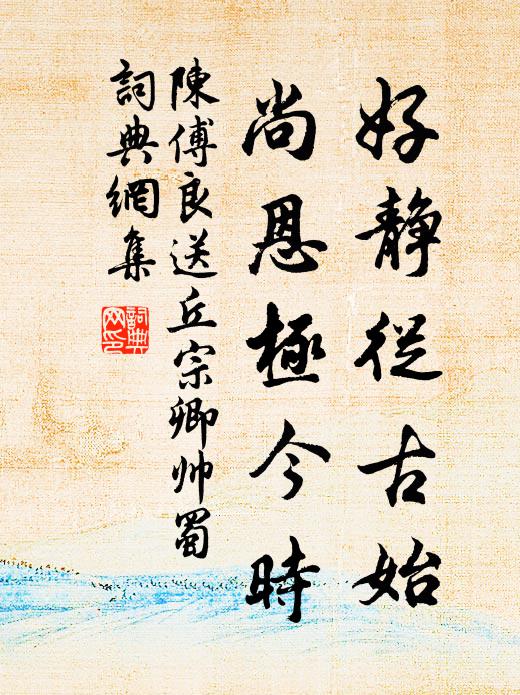 好靜從古始
尚恩極今時
陳傅良送丘宗卿帅蜀
詞典網集
詞典网印